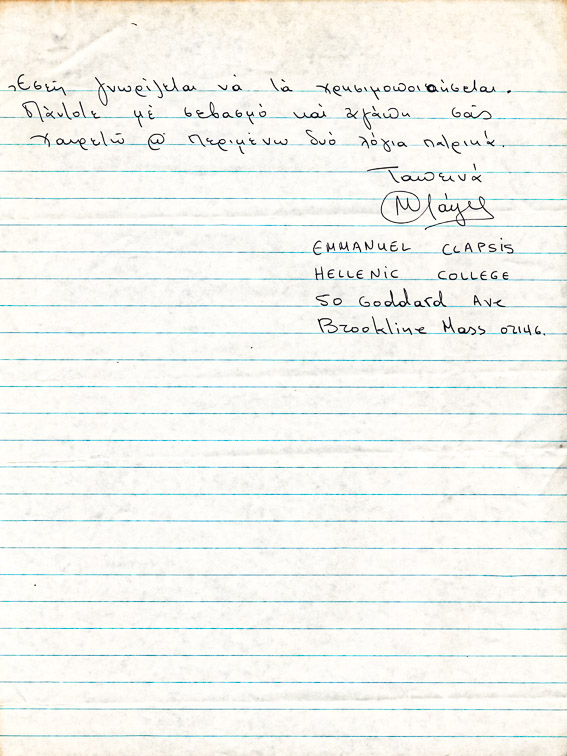 Ἐσεῖς γνωρίζεται νά τά χρησιμοποιήσεται.
Πάντοτε μέ σεβασμό καί ἀγάπη σᾶς
χαιρετῶ & περιμένω δυό λόγια πατρικά.
Ταπεινά
EMMANUEL CLAPSIS
HELLENIC COLLEGE
50 Goddard Ave
Brookline Mass 02146.